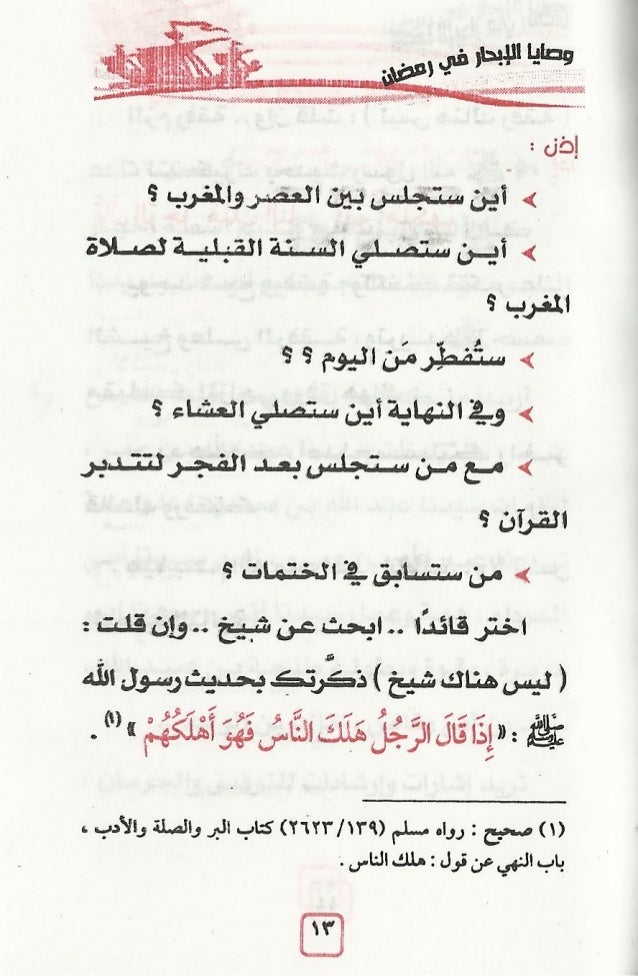 وصايا الإبحار في رمضان
إذن :
أين ستجلس بين العصر والمغرب ؟
أين ستصلي السنة القبلية لصلاة
المغرب ؟
ستُفطِّر مَن اليوم ؟ ؟
وفي النهاية أين ستصلي العشاء ؟
مع من ستجلس بعد الفجر لتتدبر
القرآن ؟
من ستسابق في الختمات ؟
اختر قائدًا .. ابحث عن شيخ .. وإن قلت :
( ليس هناك شيخ ) ذكَّرتك بحديث رسول الله
ﷺ : « إِذَا قَالَ الرَّجُلُ هَلَكَ النَّاسُ فَهُوَ أَهْلَكُهُمْ » (١) .
(١) صحيح : رواه مسلم (٢٦٢٣/١٣٩) كتاب البر والصلة والأدب ،
باب النهي عن قول : هلك الناس .
١٣